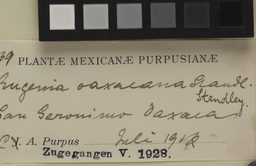 39 PLANTÆ MEXICANÆ PURPUSIANÆ
Eugenia oaxacana Standl.
Standley.
San Geronimo Oaxaca
C. A. Purpus Juli
Zugegangen V. 1928.